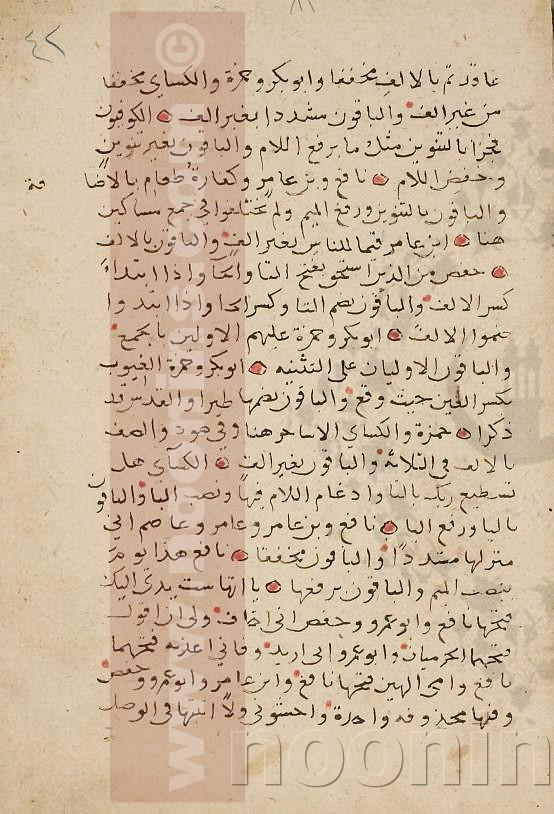 ٤٢
عاقدتم بالالف مخففا وابو بكر وحمزة والكساي مخففا
من غير الف والباقون مشددا بغير الف الكوفيون
فجزا بالتنوين مثل ما برفع اللام والباقون بغير تنوين
وخفض اللام نافع وبن عامر وكفارة طعام بالاضا فة
والباقون بالتنوين ورفع الميم ولم يختلفوا في جمع مساكين
هنا ابن عامر قيما للناس بغير الف والباقون بالالف
حفص من الذين استحق بفتح التا والحا واذا ابتداء
كسر الالف والباقون بضم التا وكسر الحا واذا ابتدوا
ضموا الالف ابو بكر وحمزة عليهم الاولين بالجمع
والباقون الاوليان على التثنيه ابو بكر وحمزة الغيوب
بكسر الغين حيث وقع والباقون بضمها طيرا والقدس قد
ذكرا حمزة والكساي الا ساحر هنا وفي هود والصف
بالالف في الثلاثة والباقون بغير الف الكساي هل
تستطيع ربك بالتا وادغام اللام فيها ونصب البا والباقون
باليا ورفع البا نافع وبن عامر وعاصم اني
منزلها مشددا والباقون مخففا نافع هذا يوم
بنصب الميم والباقون برفعها ياآتها ست يدي اليك
فتحها نافع وابو عمرو وحفص اني اخاف ولي ان اقول
فتحهما الحرميان وابو عمرو اني اريد وفاني اعذبه فتحهما
نافع وامي الهين فتحها نافع وابن عامر وابو عمرو وحفص
وفيها محذوفه واحدة واخشوني ولا اثبتها في الوصل
www.noormags.com ©
noormin